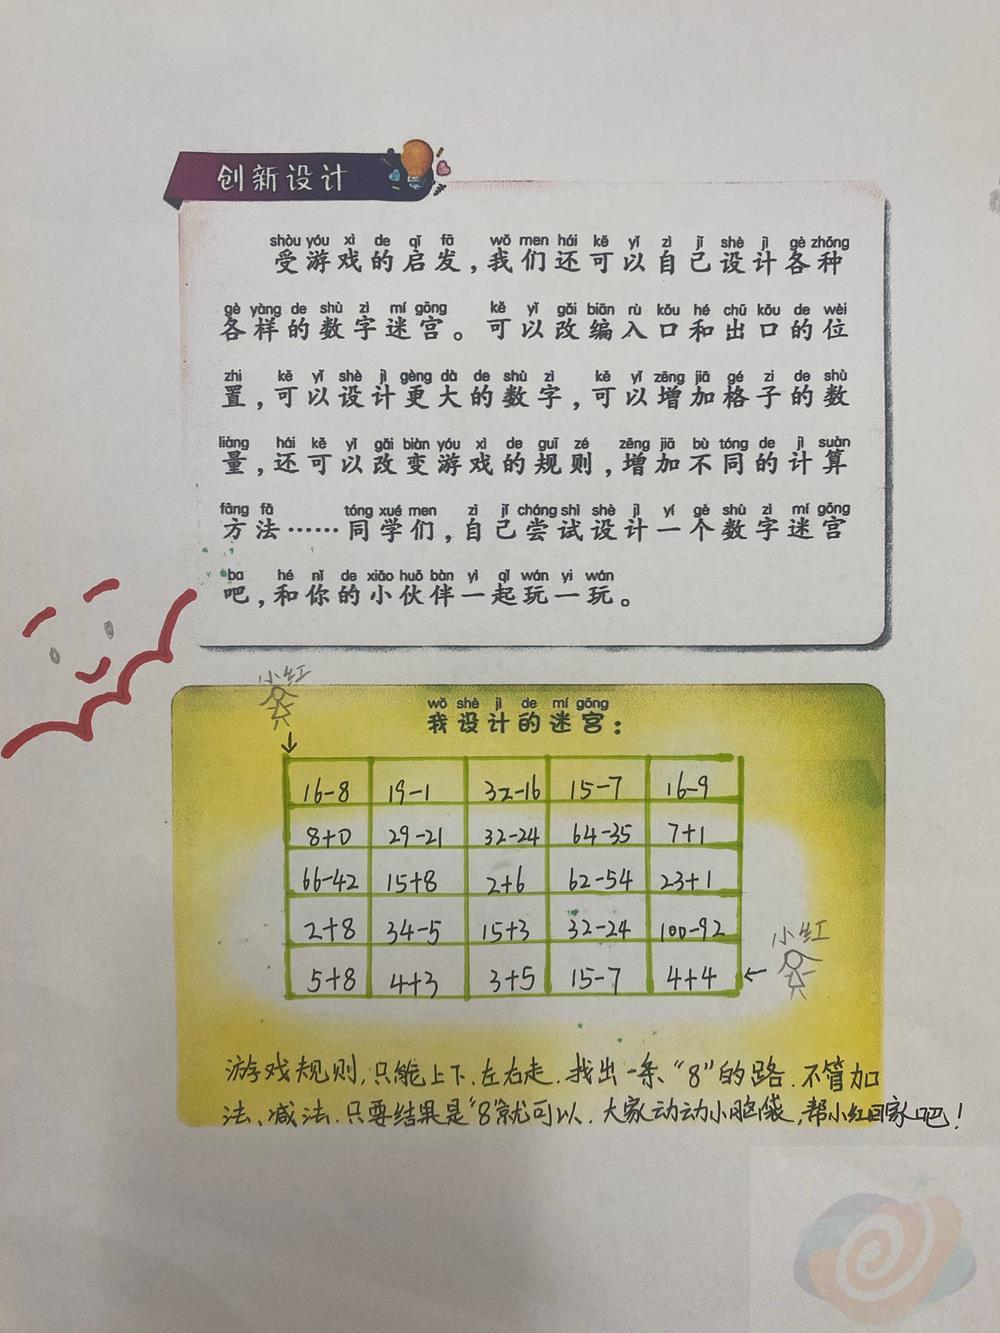 创新设计
shòu yóu xì de qǐ fā wǒ men hái kě yǐ zì jǐ shè jì gè zhǒng
受游戏的启发，我们还可以自己设计各种
gè yàng de shù zì mí gōng kě yǐ gǎi biān rù kǒu hé chū kǒu de wèi
各样的数字迷宫。可以改编入口和出口的位
zhi kě yǐ shè jì gèng dà de shù zì kě yǐ zēng jiā gé zi de shù
置，可以设计更大的数字，可以增加格子的数
liàng hái kě yǐ gǎi biàn yóu xì de guī zé zēng jiā bù tóng de jì suàn
量，还可以改变游戏的规则，增加不同的计算
fāng fǎ tóng xué men zì jǐ cháng shì shè jì yí gè shù zì mí gōng
方法……同学们，自己尝试设计一个数字迷宫
ba hé nǐ de xiǎo huǒ bàn yì qǐ wán yi wán
吧，和你的小伙伴一起玩一玩。
小红
wǒ shè jì de mí gōng
我设计的迷宫：
16-8 19-1 32-16 15-7 16-9
8+0 29-21 32-24 64-35 7+1
66-42 15+8 2+6 62-54 23+1
2+8 34-5 15+3 32-24 100-92
小红
5+8 4+3 3+5 15-7 4+4
游戏规则，只能上下、左右走．找出一条“8”的路．不管加
法、减法．只要结果是“8”就可以．大家动动小脑袋，帮小红回家吧！